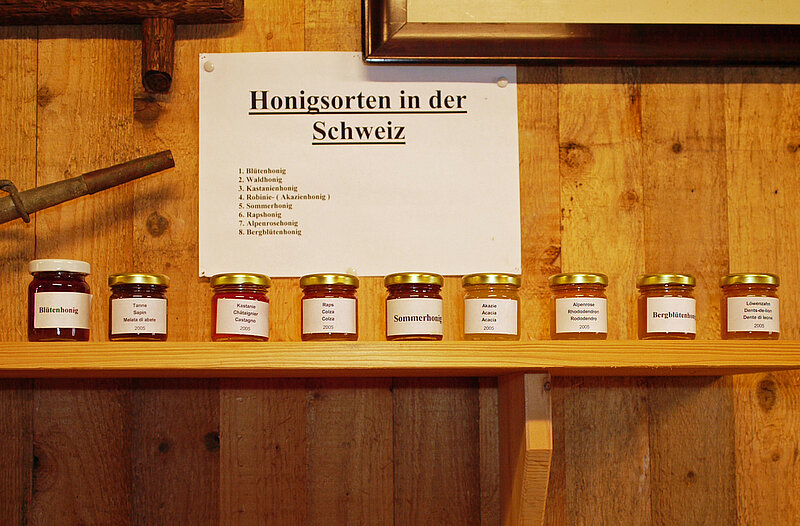 Honigsorten in der
Schweiz
1. Blütenhonig
2. Waldhonig
3. Kastanienhonig
4. Robinie- ( Akazienhonig )
5. Sommerhonig
6. Rapshonig
7. Alpenroschonig
8. Bergblütenhonig
Blütenhonig
Tanne
Sapin
Melata di abete
2005
Kastanie
Châtaignier
Castagno
2005
Raps
Colza
Colza
2005
Sommerhonig
Akazie
Acacia
Acacia
2005
Alpenrose
Rhododendron
Rododendro
2005
Bergblütenho
Löwenzahn
Dents-de-lion
Dente di leone
2005